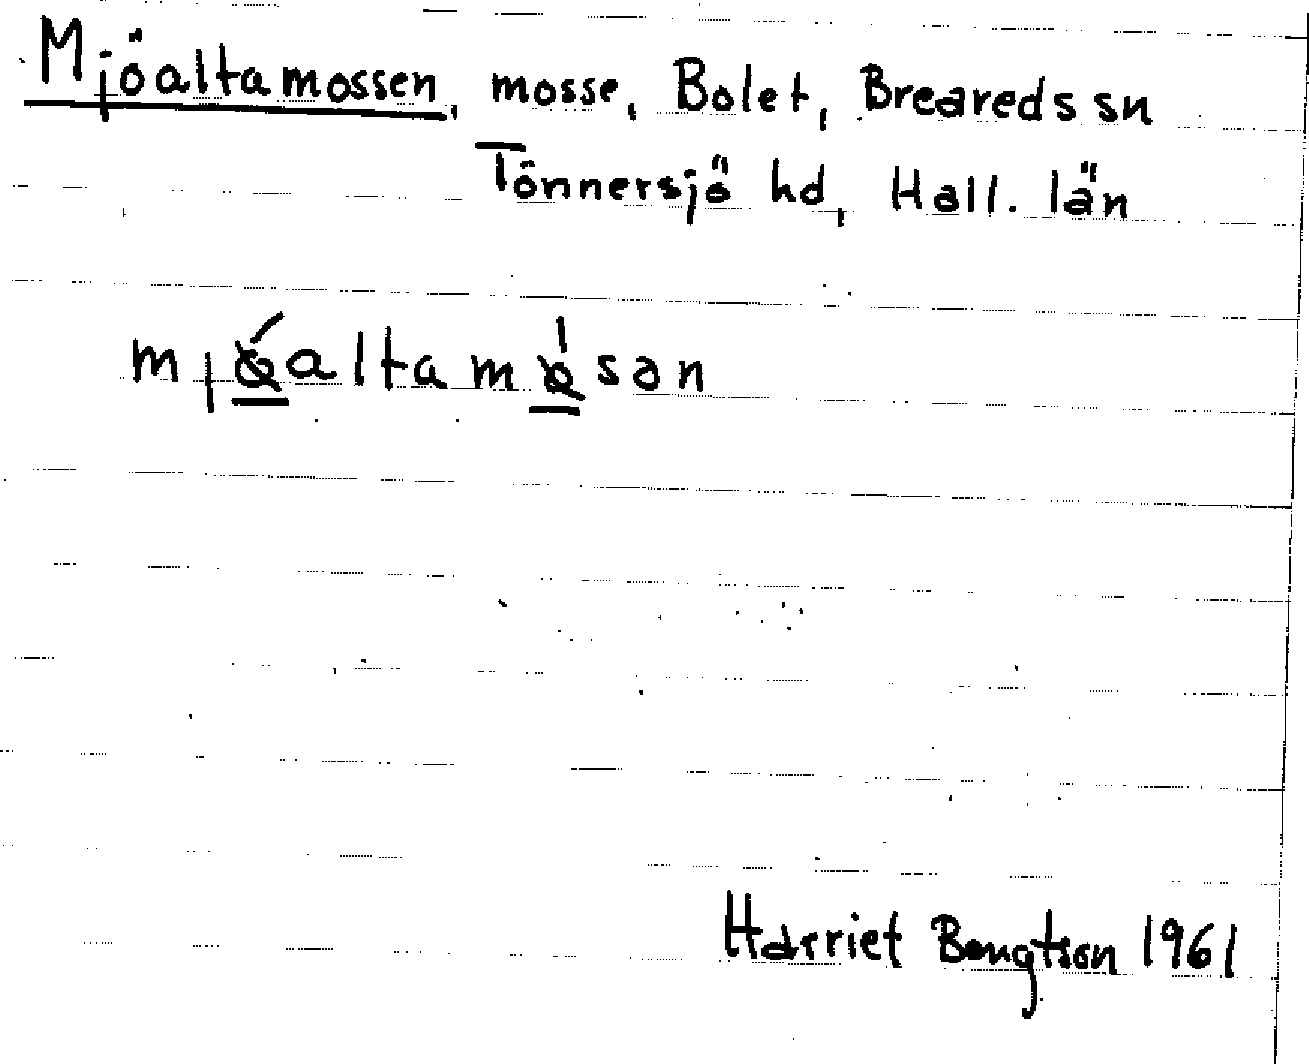 Mjöaltamossen, mosse, Bolet, Breareds sn
Tönnersjö hd, Hall. län
Harriet Bengtson 1961